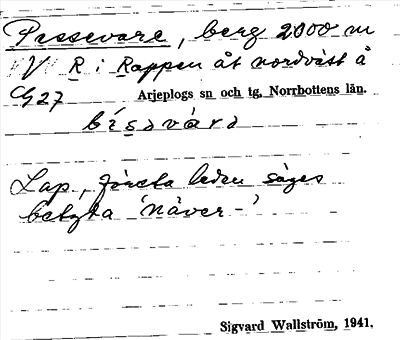 Pessevare, berg 2000 m
V R i Rappen åt nordväst å
Cg 27 Arjeplogs sn och tg, Norrbottens län.
bisavárə
Lap., första leden säges
betyda 'näver-'
Sigvard Wallström, 1941.